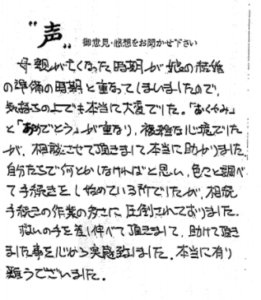 "声" 御意見・感想をお聞かせ下さい
母親が亡くなった時期が娘の結婚
の準備の時期と重なってしまいましたので、
気持ちの上でも本当に大変でした。「おくやみ」
と「おめでとう」が重なり、複雑な心境でした
が、相談させて頂きまして本当に助かりました。
自分たちで何とかしなければと思い、色々と調べ
て手続きをし始めている所でしたが、相続
手続きの作業の多さに圧倒されておりました。
救いの手を差し伸べて頂きまして、助けて頂き
ました事を心から実感致しました。本当に有り
難うございました。